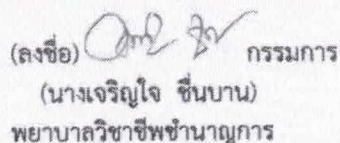 (ลงชื่อ) กรรมการ
(นางเจริญใจ ชื่นบาน)
พยาบาลวิชาชีพชำนาญการ